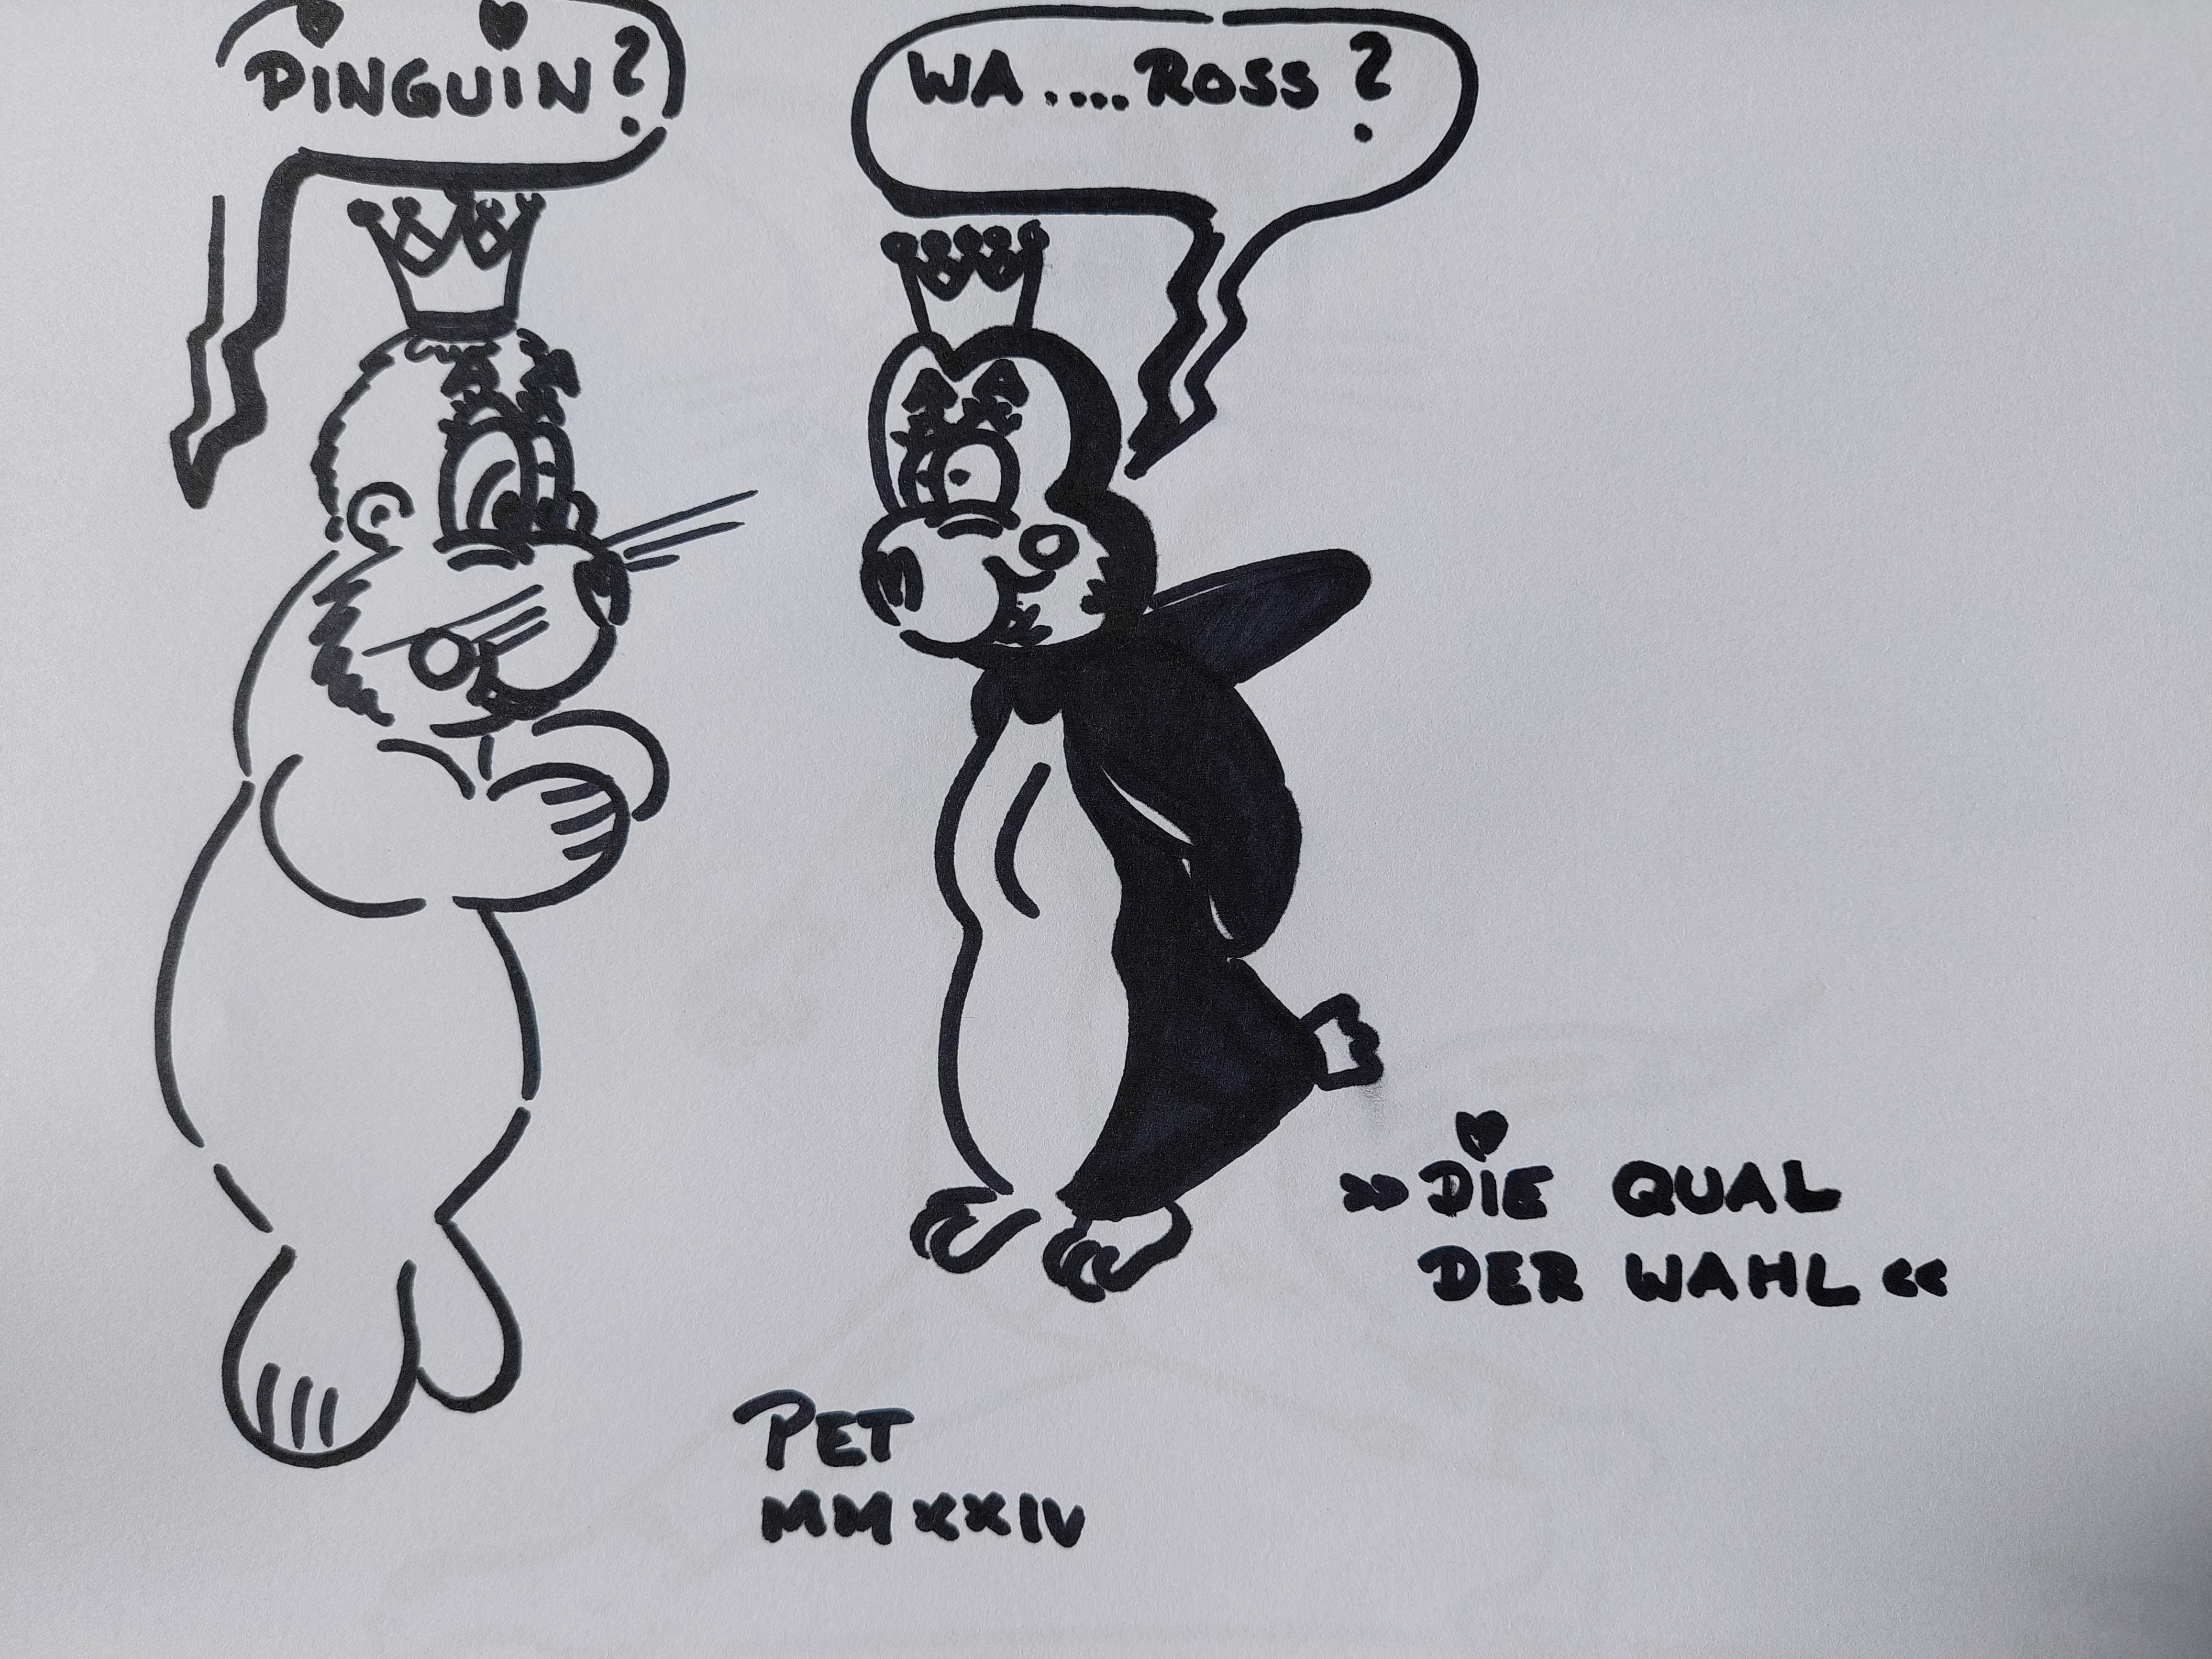 PINGUIN?
WA....ROSS?
»DIE QUAL
DER WAHL«
PET
MMXXIV